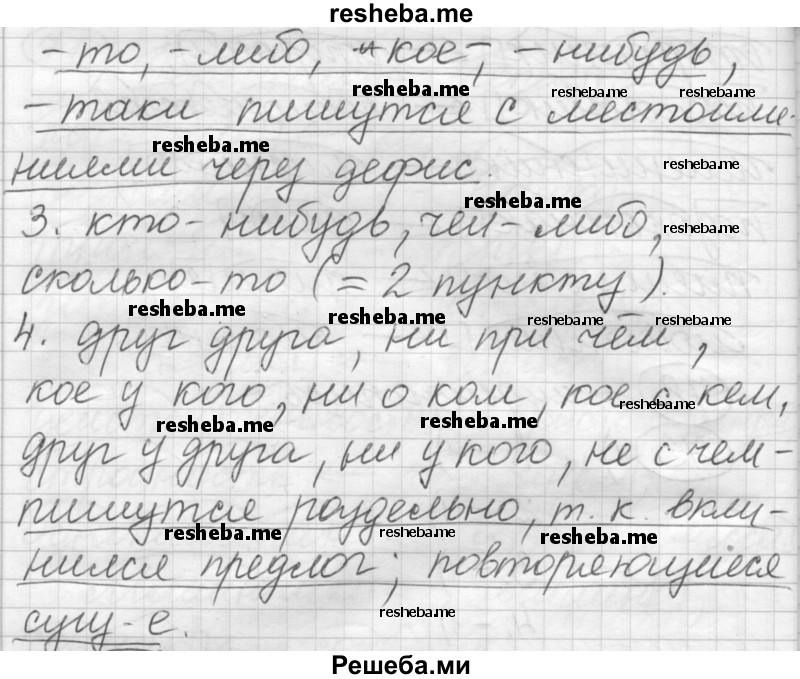 resheba.me
-то, -либо, кое-, -нибудь,
resheba.me resheba.me resheba.me
-таки пишутся с местоиме-
resheba.me
ниями через дефис.
resheba.me
resheba.me
3. кто-нибудь, чей-либо,
resheba.me
сколько-то (= 2 пункту).
resheba.me resheba.me resheba.me resheba.me
4. друг друга, ни при чём,
кое у кого, ни о ком, кое с кем,
resheba.me
resheba.me resheba.me
друг у друга, ни у кого, не с чем-
пишутся раздельно, т. к. вкли-
resheba.me resheba.me resheba.me
нился предлог; повторяющиеся
resheba.me
сущ-е.
Решеба.ми